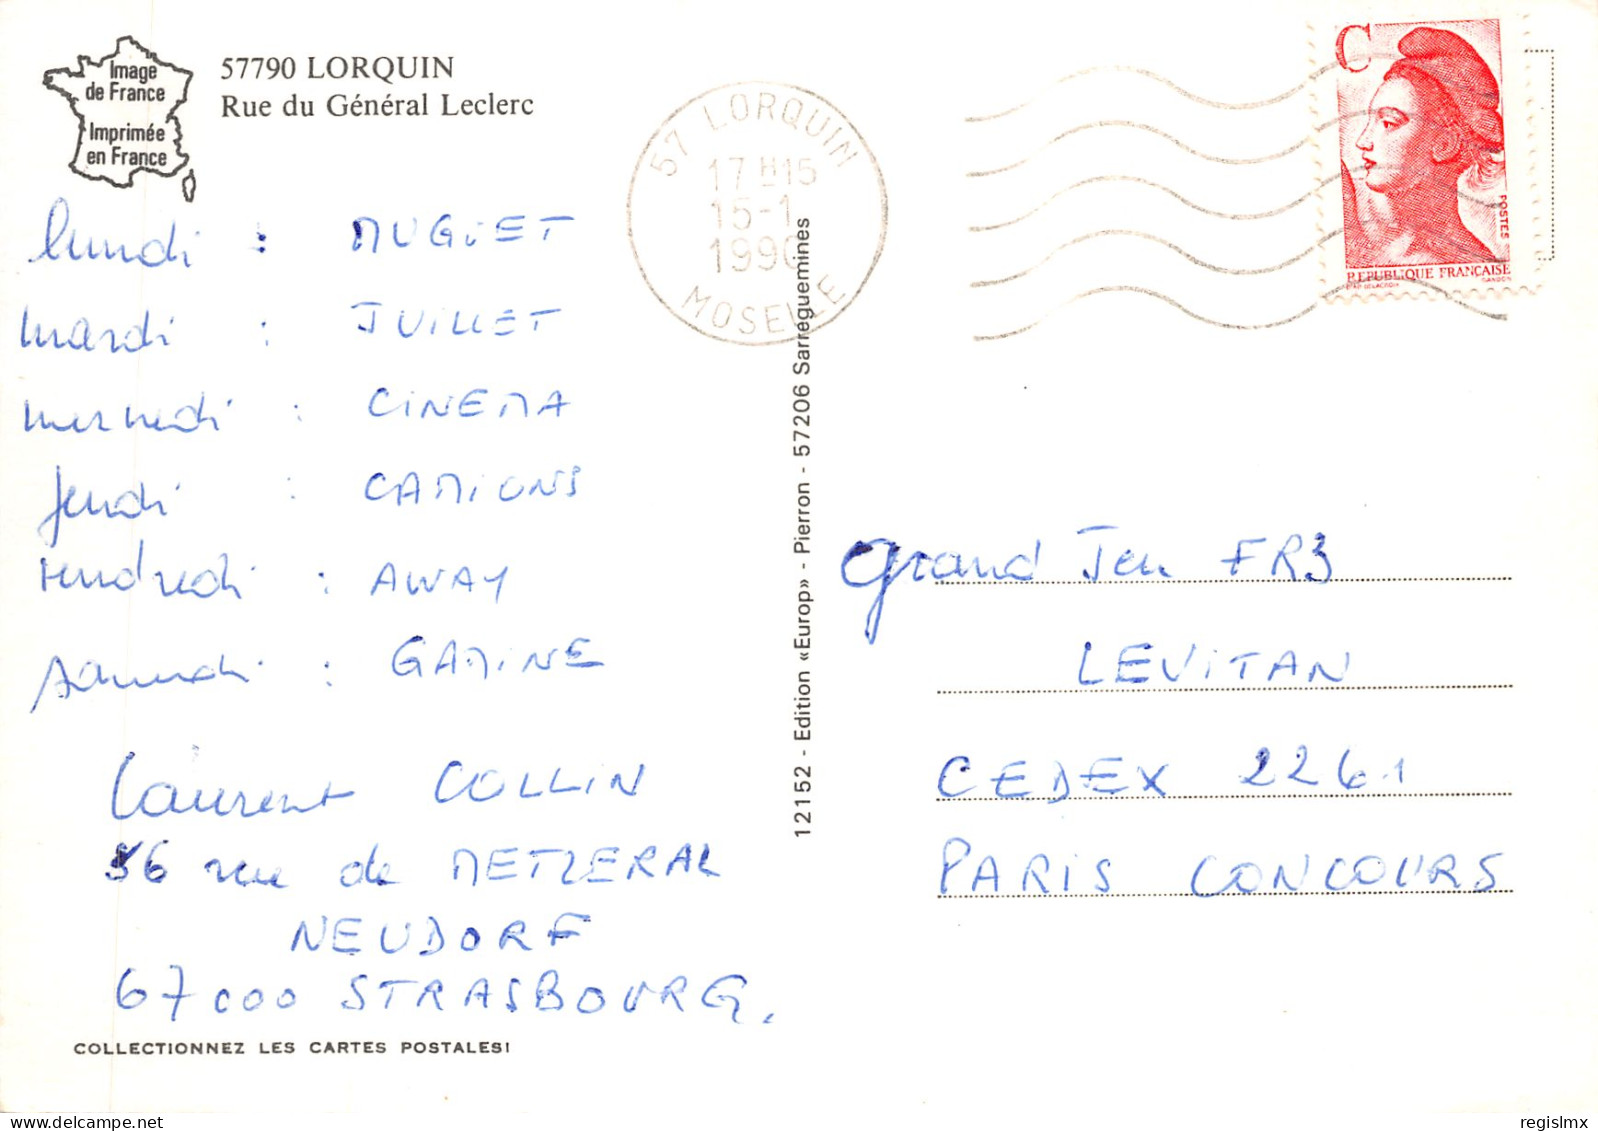 Image
de France
Imprimée
en France
57790 LORQUIN
Rue du Général Leclerc
57 LORQUIN
17 H 15
15-1
1990
MOSELLE
C
POSTES
REPUBLIQUE FRANÇAISE
GANDON
D'AP. DELACROIX
lundi : MUGUET
mardi : JUILLET
mercredi : CINEMA
jeudi : CAMIONS
vendredi : AWAY
samedi : GAMINE
Laurent COLLIN
56 rue de METZERAL
NEUDORF
67000 STRASBOURG.
COLLECTIONNEZ LES CARTES POSTALES!
12152 - Edition «Europ» - Pierron - 57206 Sarreguemines
Grand Jeu FR3
LEVITAN
CEDEX 2261
PARIS CONCOURS
regislmx